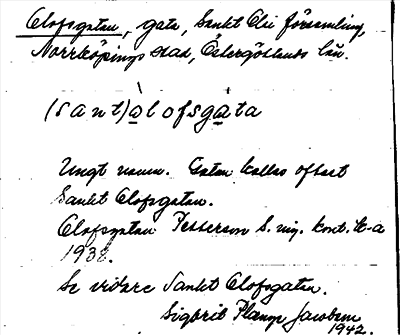 Olofsgatan, gata, Sankt Olai församling,
Norrköpings stad, Östergötlands län.
(sant)ålofsgata
Ungt namn. Gatan kallas oftast
Sankt Olofsgatan.
Olofsgatan Pettersson S. kont. k-a
1938.
Se vidare Sankt Olofsgatan.
Sigbrit Plænge Jacobson
1942.